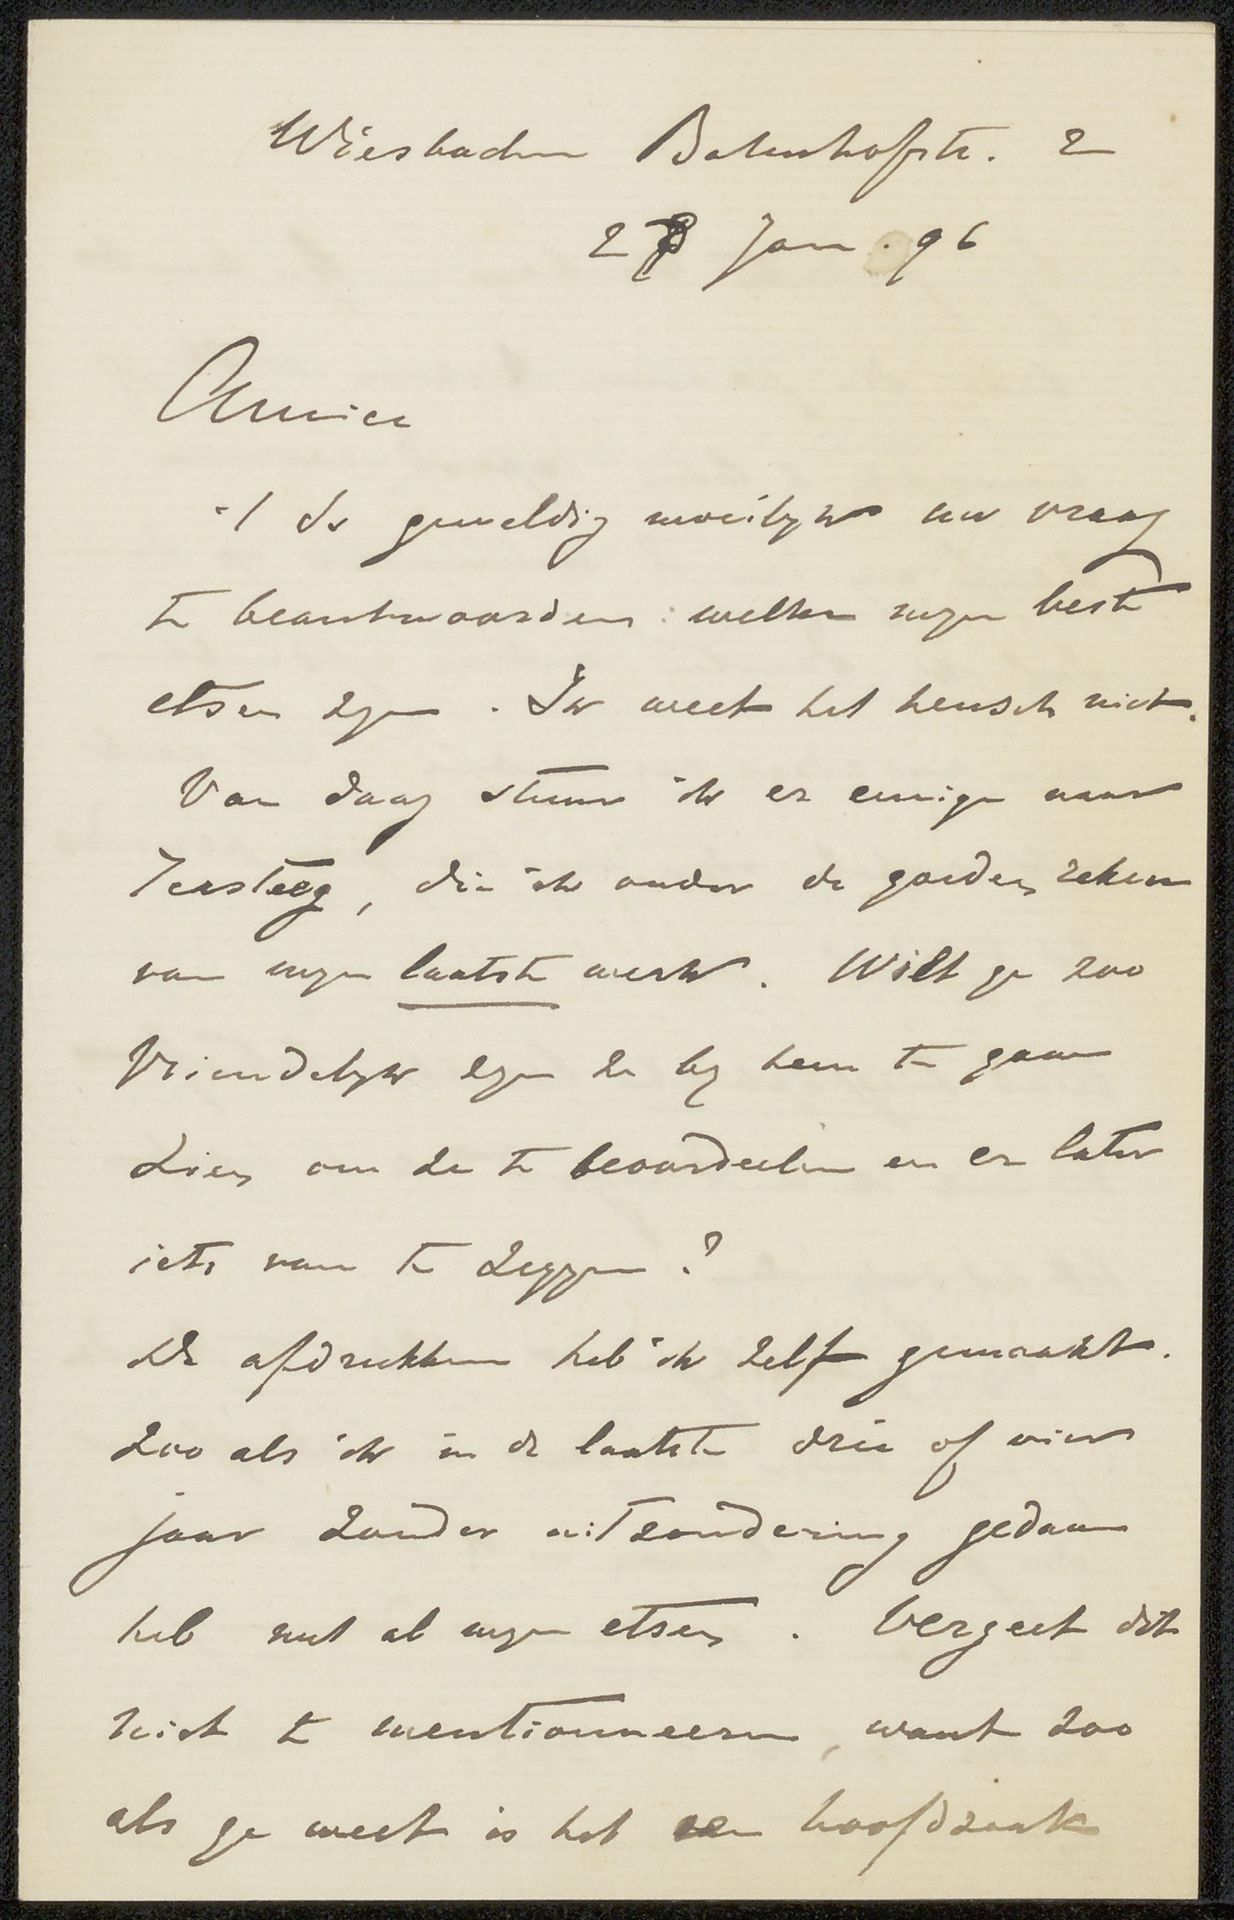 Wiesbaden Bahnhofstr. 2
28 Jan. 96
Amice
't Is geweldig moeilyk uw vraag
te beantwoorden: welke myn beste
etsen zyn. Ik weet het heusch niet.
Van daag stuur ik er eenige naar
Tersteeg, die ik onder de goeden reken
van myn laatste werk. Wilt ge zoo
vriendelyk zyn ze by hem te gaan
zien om ze te beoordeelen en er later
iets van te zeggen?
De afdrukken heb ik zelf gemaakt.
Zoo als ik in de laatste drie of vier
jaar zonder uitzondering gedaan
heb met al myn etsen. Vergeet dit
niet te mentionneeren, want zoo
als ge weet is het een hoofdzaak